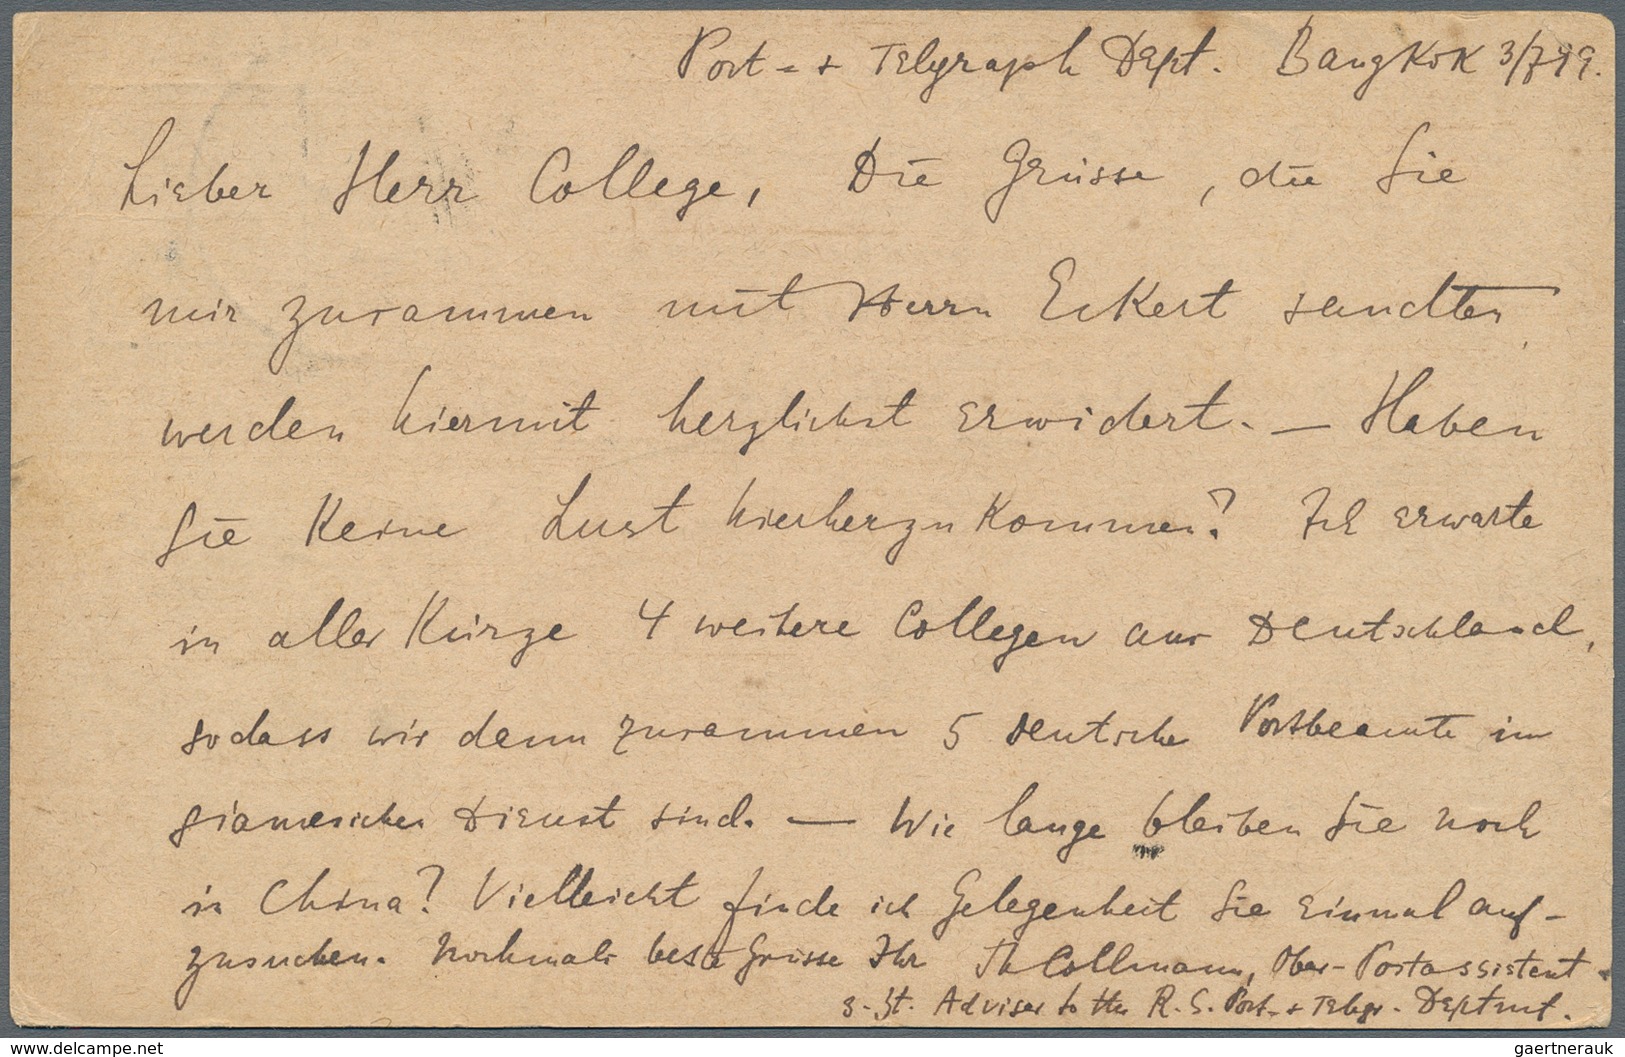 Post- & Telegraph Dept. Bangkok 3/7 99.
Lieber Herr College, Die Grüsse, die Sie
mir zusammen mit Herrn Eckert sandten
werden hiermit herzlichst erwidert. — Haben
Sie keine Lust hierherzukommen? Ich erwarte
in aller Kürze 4 weitere Collegen aus Deutschland,
sodass wir dann zusammen 5 deutsche Postbeamte im
siamesischen Dienst sind. — Wie lange bleiben Sie noch
in China? Vielleicht finde ich Gelegenheit Sie einmal auf-
zusuchen. Nochmals beste Grüsse Ihr Th Collmann, Ober-Postassistent
z. Zt. Adviser to the R. S. Post- & Telegr. Deptmt.
www.delcampe.net
gaertnerauk